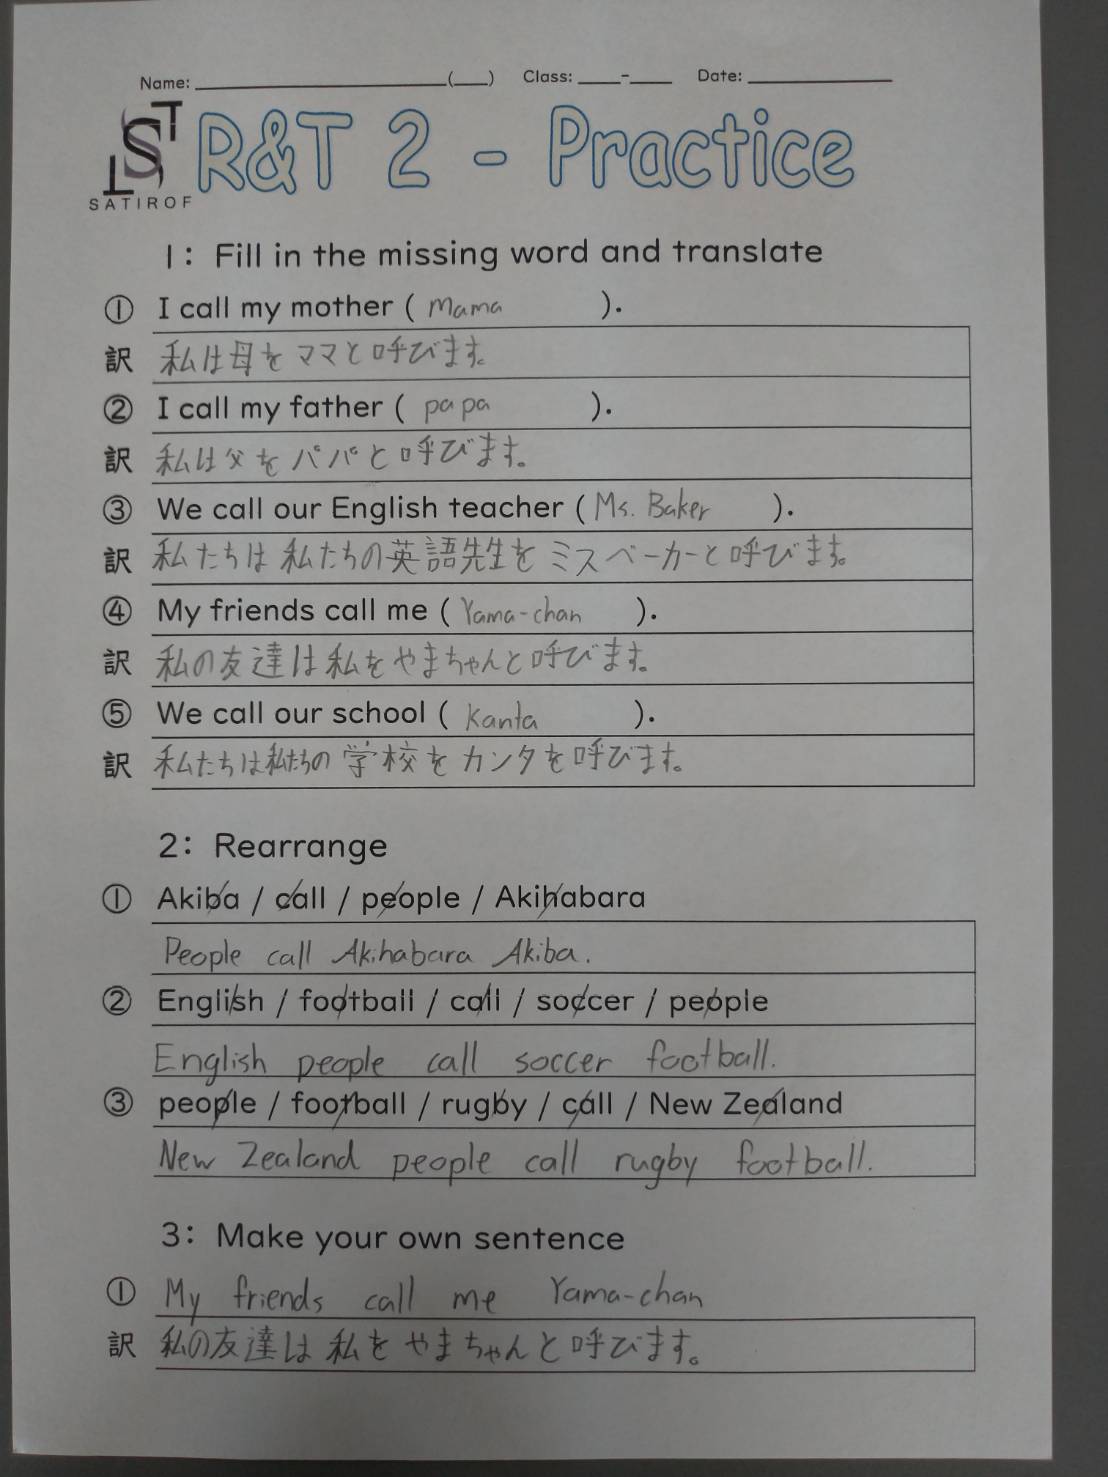 Name: ____________(___) Class: ____-____ Date: ____________
ST
LS
SATIROF
R&T 2 - Practice
1: Fill in the missing word and translate
① I call my mother ( Mama ).
訳 私は母をママと呼びます。
② I call my father ( papa ).
訳 私は父をパパと呼びます。
③ We call our English teacher ( Ms. Baker ).
訳 私たちは私たちの英語先生をミスベーカーと呼びます。
④ My friends call me ( Yama-chan ).
訳 私の友達は私をやまちゃんと呼びます。
⑤ We call our school ( Kanta ).
訳 私たちは私たちの学校をカンタを呼びます。
2: Rearrange
① Akiba / call / people / Akihabara
People call Akihabara Akiba.
② English / football / call / soccer / people
English people call soccer football.
③ people / football / rugby / call / New Zealand
New Zealand people call rugby football.
3: Make your own sentence
① My friends call me Yama-chan
訳 私の友達は私をやまちゃんと呼びます。